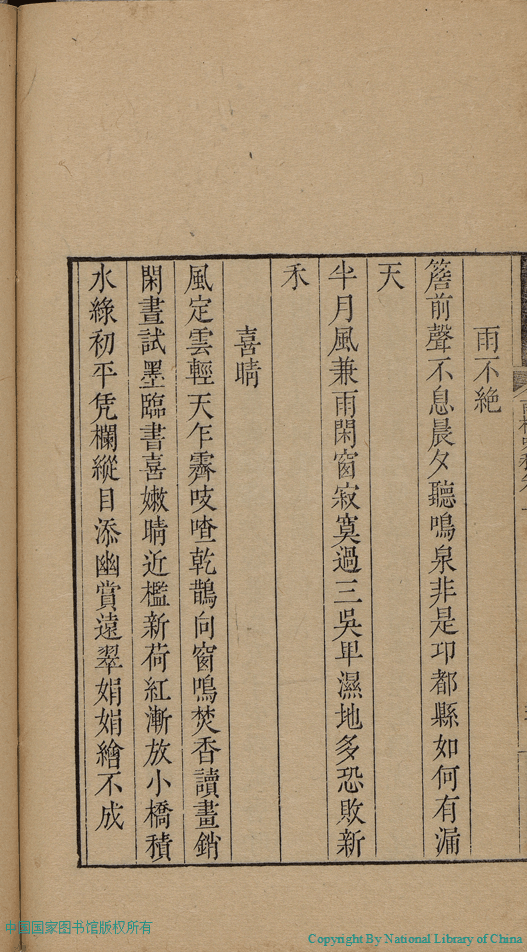 雨不絶
簷前聲不息晨夕聽鳴泉非是邛都縣如何有漏
天
半月風兼雨閑窗寂寞過三吳卑濕地多恐敗新
禾
喜晴
風定雲輕天乍霽吱喳乾鵲向窗鳴焚香讀畫銷
閑晝試墨臨書喜嫩晴近檻新荷紅漸放小橋積
水綠初平凭欄縱目添幽賞遠翠娟娟繪不成
中国国家图书馆版权所有
Copyright By National Library of China